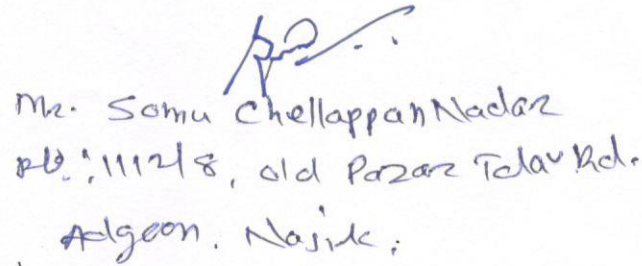 Mr. Somu Chellappan Nadar
1112/8, old Pazar Talav Rd.
Adgaon. Nasik.